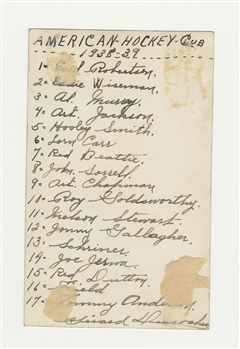 AMERICAN-HOCKEY-CUB
1938-39
1- Earl Robertson.
2- Eddie Wiseman.
3- Al. Murray.
4- Art. Jackson.
5- Hooley Smith.
6- Lorn Carr
7- Red Beattie.
8- John. Sorrell.
9- Art. Chapman
10- Roy Goldsworthy.
11- Nelson Stewart.
12- Jonny Gallagher.
13- Schriner.
14- Joe Jerwa.
15- Red. Dutton.
16- Field
17- Tommy Anderson.